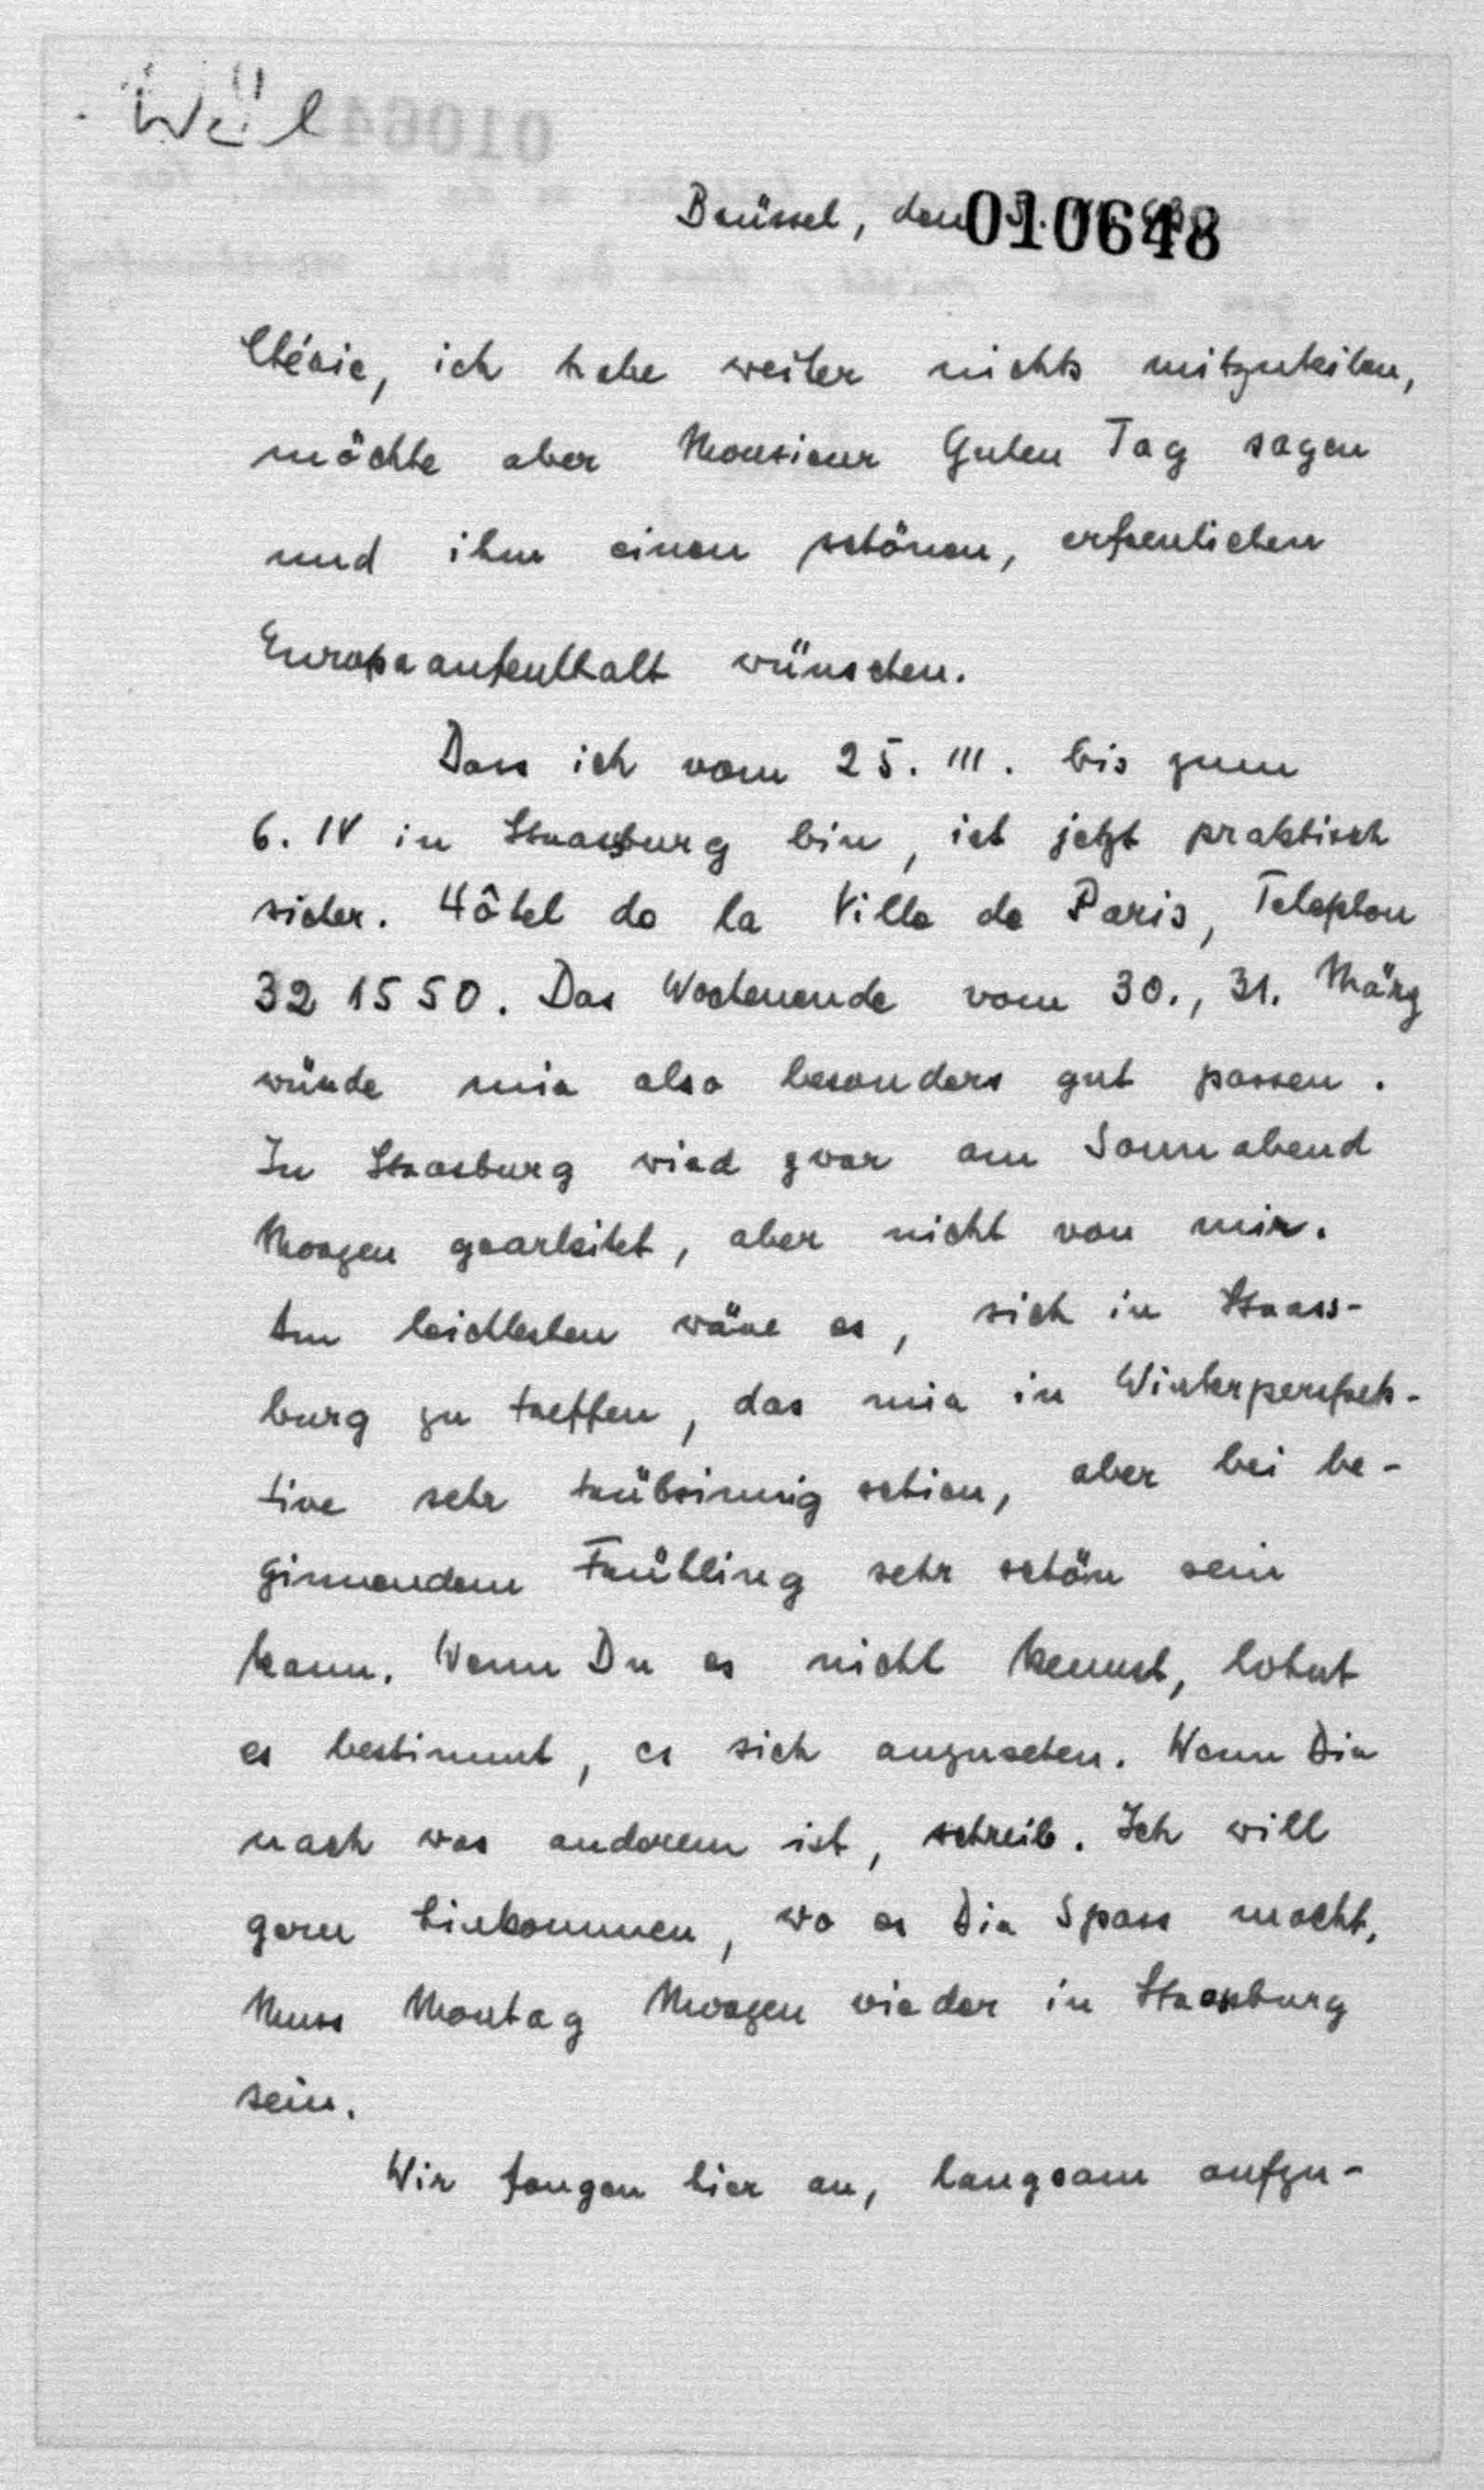 Weil
Brüssel, den
010648
Chérie, ich habe weiter nichts mitzuteilen,
möchte aber Monsieur Guten Tag sagen
und ihm einen schönen, erfreulichen
Europaaufenthalt wünschen.
Dass ich vom 25. III. bis zum
6. IV in Strassburg bin, ist jetzt praktisch
sicher. Hôtel de la Ville de Paris, Telephon
32 15 50. Das Wochenende vom 30., 31. März
würde mir also besonders gut passen.
In Strasburg wird zwar am Sonnabend
Morgen gearbeitet, aber nicht von mir.
Am leichtesten wäre es, sich in Strass-
burg zu treffen, das mir in Winterperspek-
tive sehr trübsinnig schien, aber bei be-
ginnendem Frühling sehr schön sein
kann. Wenn Du es nicht kennst, lohnt
es bestimmt, es sich anzusehen. Wenn Dir
nach was anderem ist, schreib. Ich will
gern hinkommen, wo es Dir Spass macht,
Muss Montag Morgen wieder in Strassburg
sein.
Wir fangen hier an, langsam aufzu-